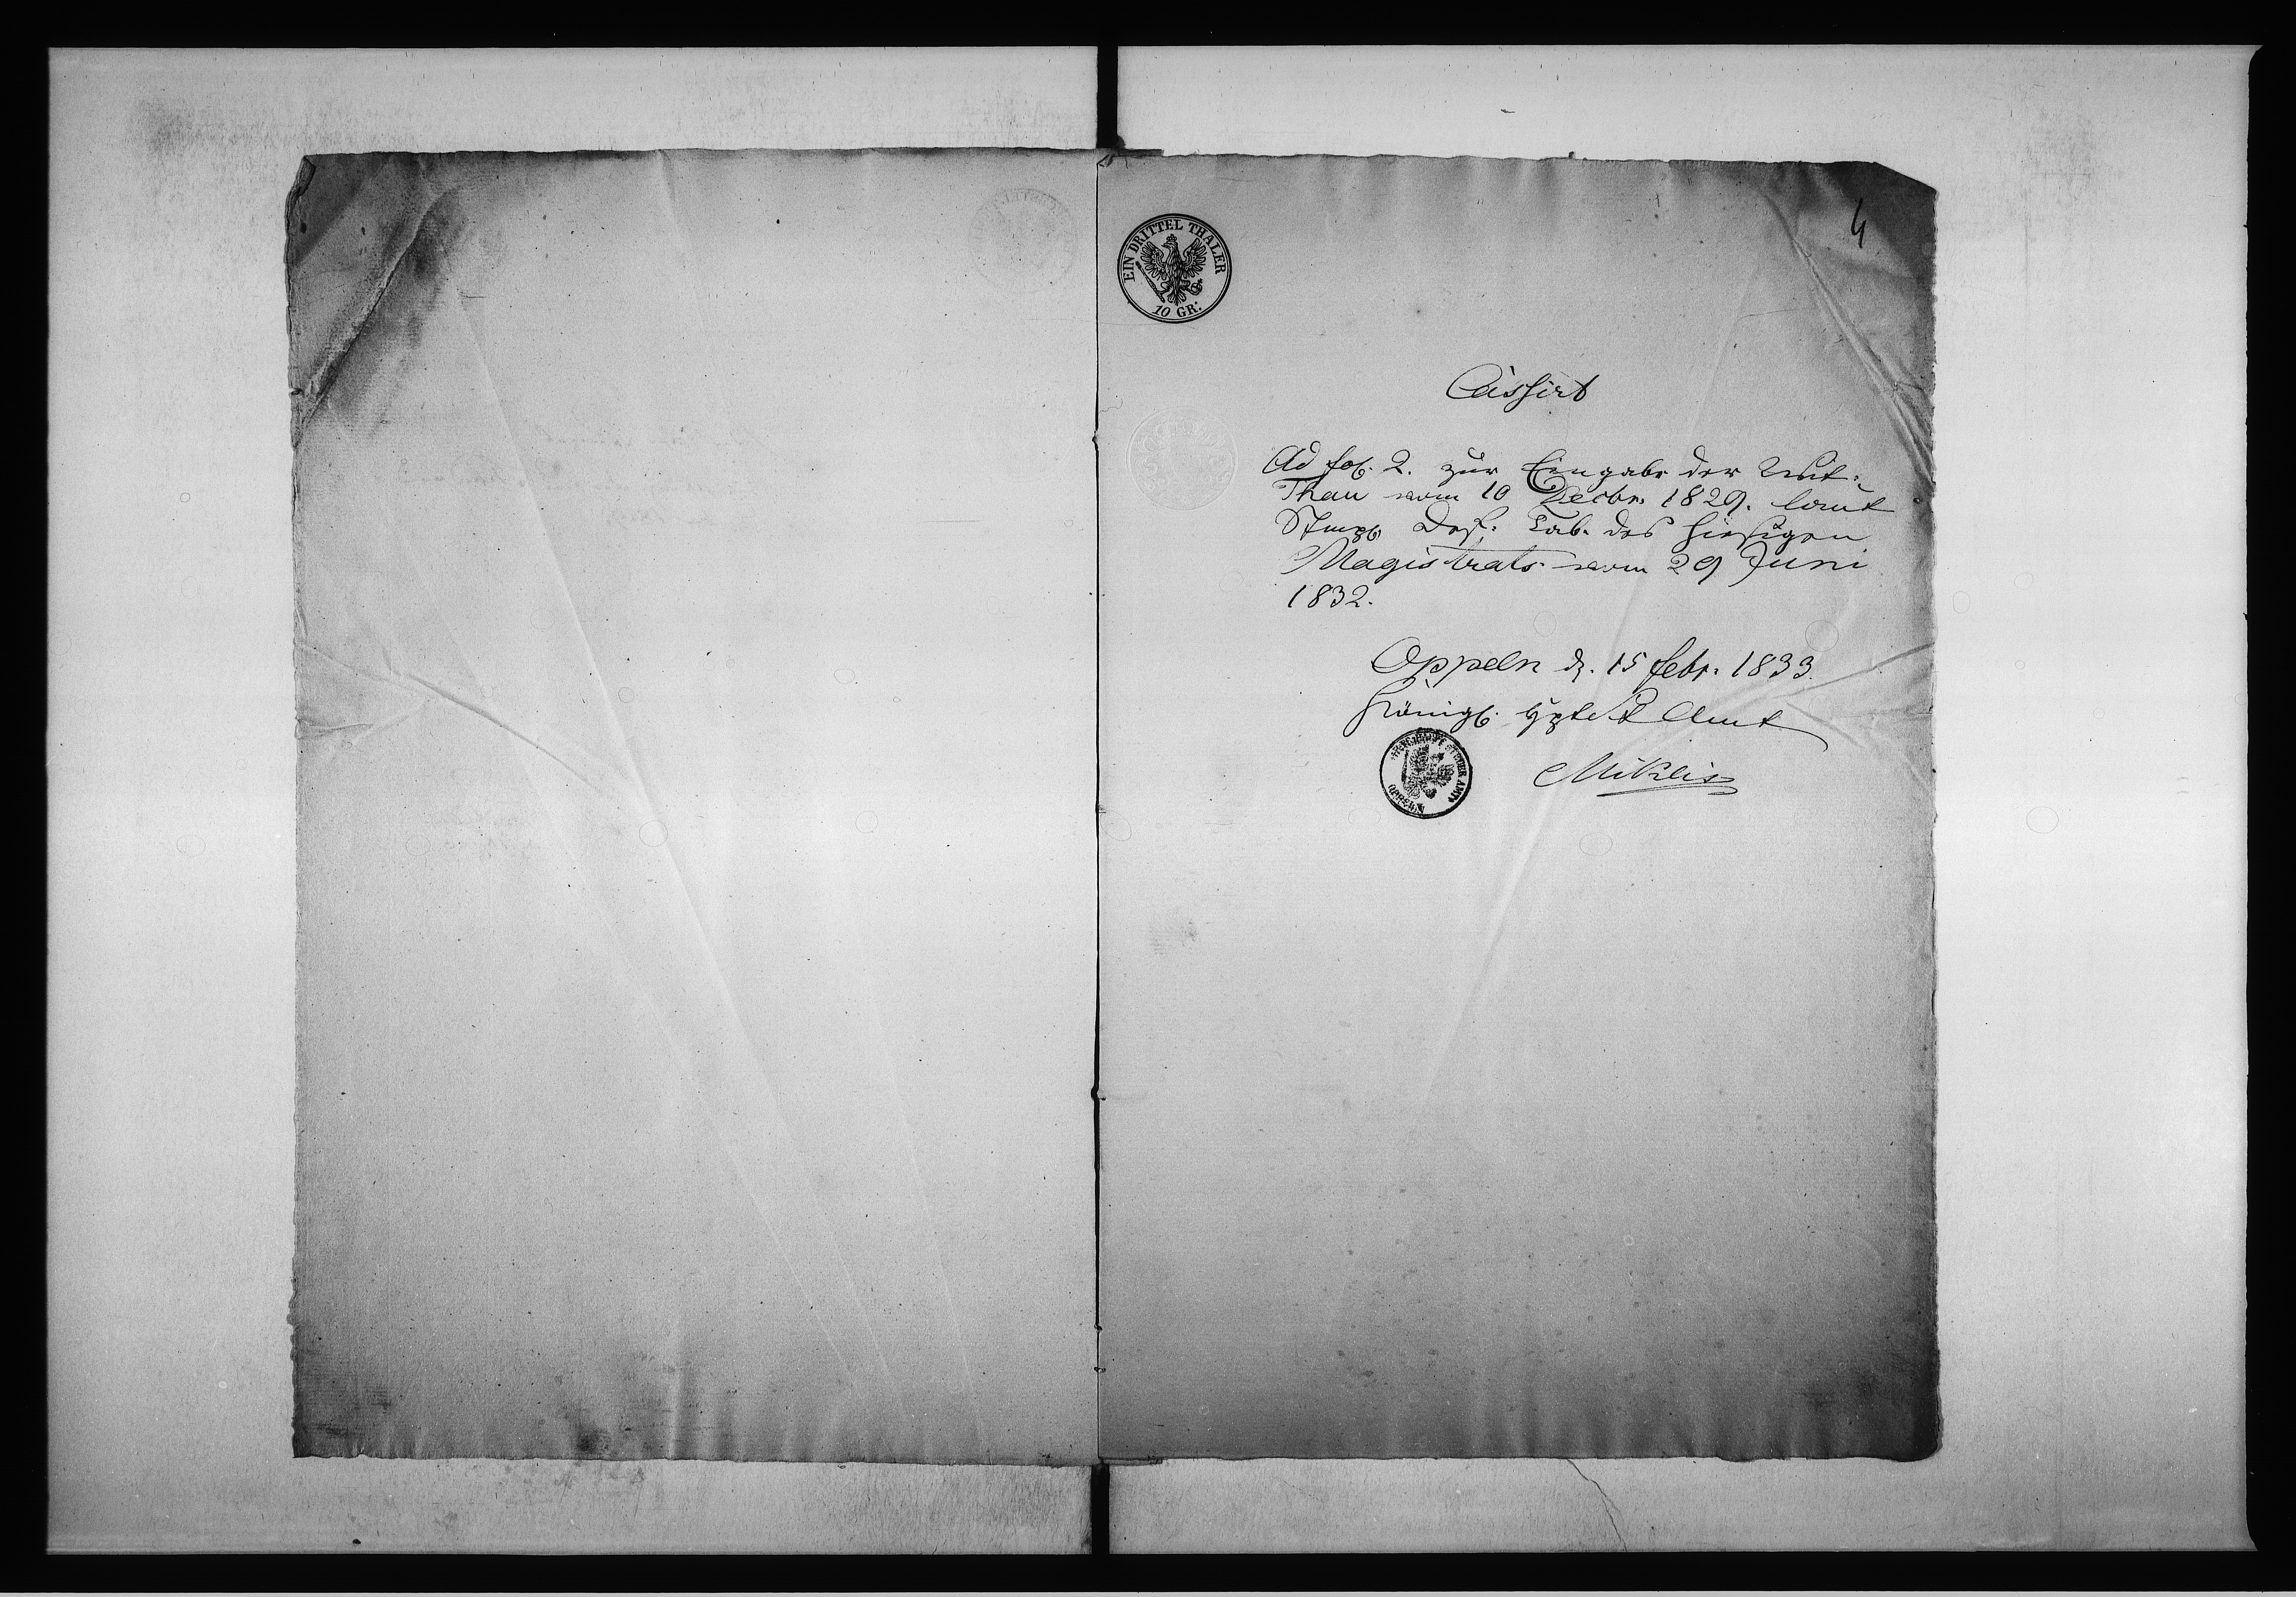 4
EIN DRITTEL THALER
10 GR:
Cassirt
Ad fol. 2. zur Eingabe der
Thau vom 10 Decbr. 1829. laut
Stmpl Def: Tab. des hiesigen
Magistrats vom 29 Juni
1832.
Oppeln d. 15 febr. 1833.
Königl. Amt
STEUER AMT OPPELN
Miklis